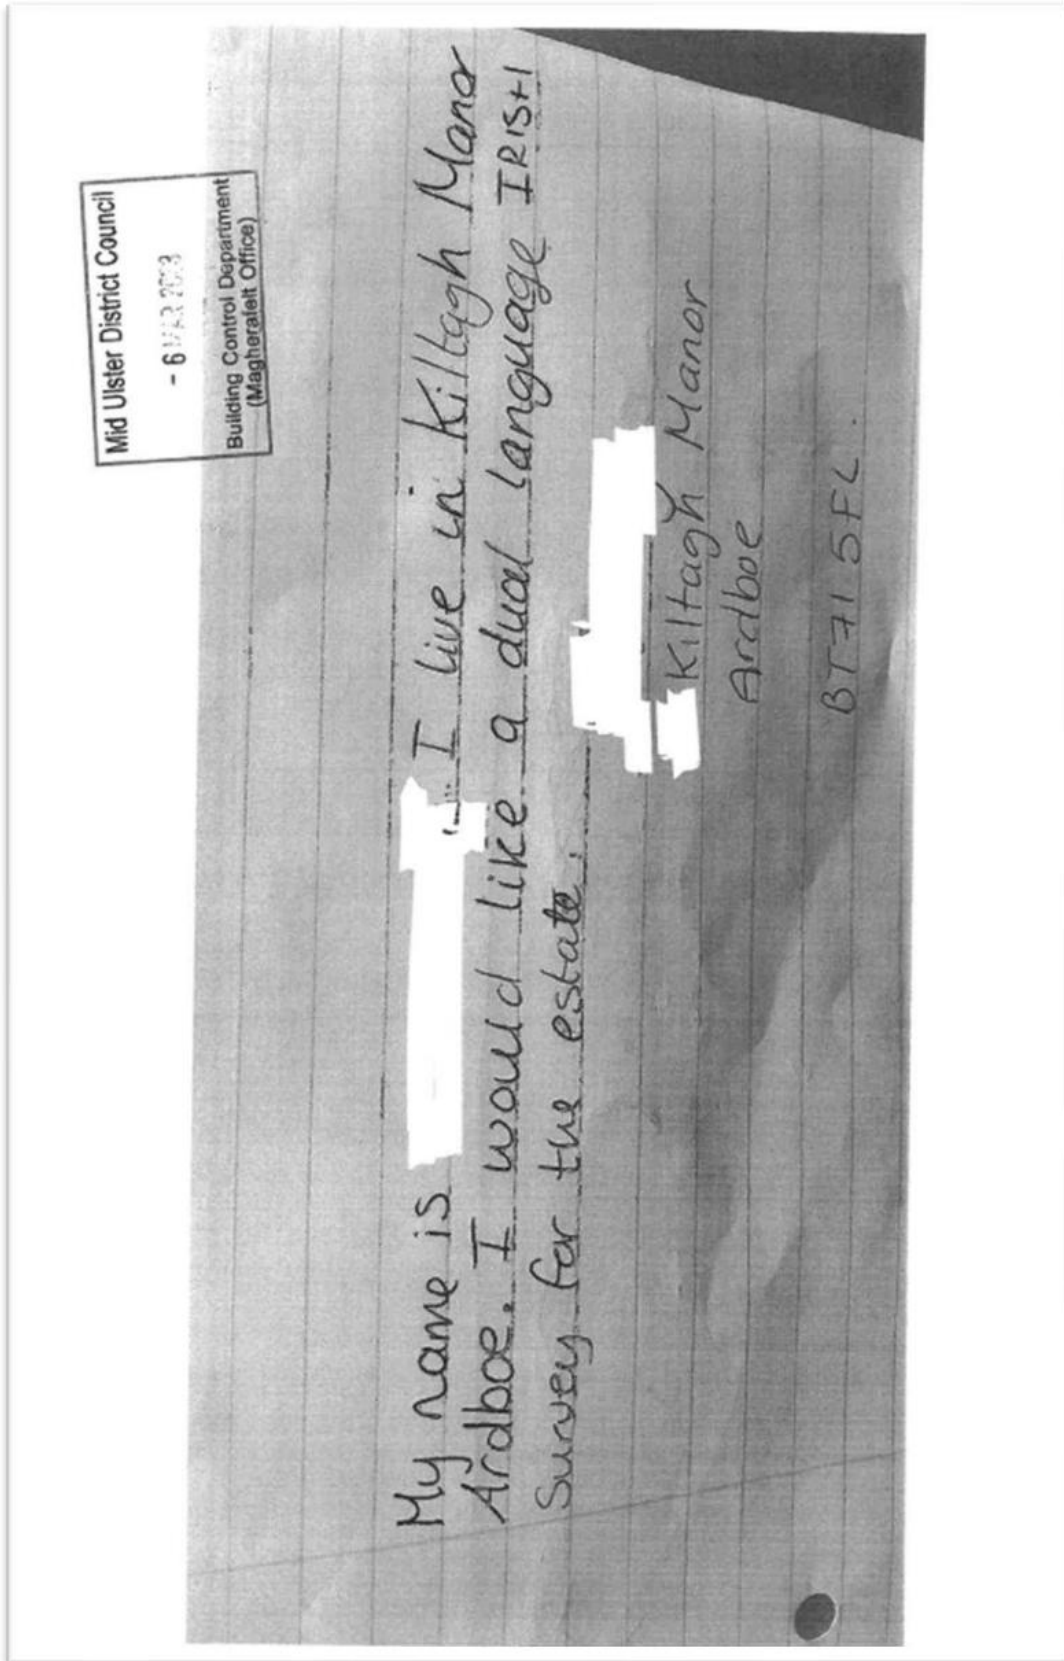 Mid Ulster District Council
- 6 MAR
Building Control Department
(Magherafelt Office)
My name is I live in Kiltagh Manor
Ardboe. I would like a dual language IRISH
Survey for the estate.
Kiltagh Manor
Ardboe
BT71 5FL.